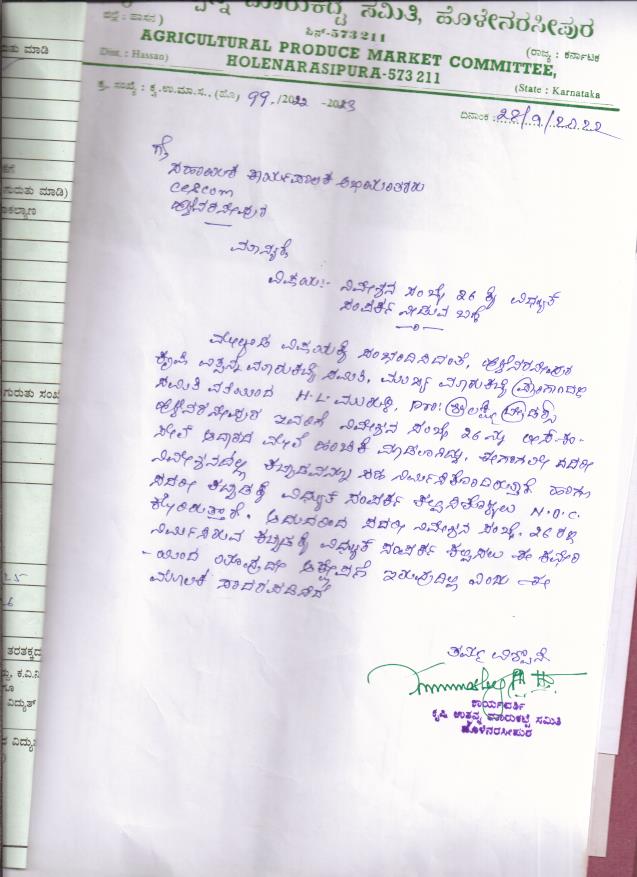 ಮಾರುಕಟ್ಟೆ ಸಮಿತಿ, ಹೊಳೇನರಸೀಪುರ
ಜಿಲ್ಲೆ : ಹಾಸನ)
ಪಿನ್-573211
(ರಾಜ್ಯ : ಕರ್ನಾಟಕ
AGRICULTURAL PRODUCE MARKET COMMITTEE,
Dist. : Hassan)
HOLENARASIPURA-573 211
(State : Karnataka
ಕ್ರ. ಸಂಖ್ಯೆ : ಕೃ.ಉ.ಮಾ.ಸ., (ಹೊ) 99./2022 -2023
ದಿನಾಂಕ : 28/9/2022
ಗೆ,
ಸಹಾಯಕ ಕಾರ್ಯಪಾಲಕ ಅಭಿಯಂತರರು
cescom
ಹೊಳೆನರಸೀಪುರ
ಮಾನ್ಯರೆ,
ವಿಷಯ:- ನಿವೇಶನ ಸಂಖ್ಯೆ 26 ಕ್ಕೆ ವಿಧ್ಯುತ್
ಸಂಪರ್ಕ ನೀಡುವ ಬಗ್ಗೆ
ಮೇಲ್ಕಂಡ ವಿಷಯಕ್ಕೆ ಸಂಭಂದಿಸಿದಂತೆ, ಹೊಳೆನರಸೀಪುರ
ಕೃಷಿ ಉತ್ಪನ್ನ ಮಾರುಕಟ್ಟೆ ಸಮಿತಿ, ಮುಖ್ಯ ಮಾರುಕಟ್ಟೆ ಪ್ರಾಂಗಣದಲ್ಲಿ
ಸಮಿತಿ ವತಿಯಿಂದ H.L ಮುರುಳಿ, pro:
ಹೊಳೆನರಸೀಪುರ ಇವರಿಗೆ ನಿವೇಶನ ಸಂಖ್ಯೆ 26 ನ್ನು ಲೀಸ್-ಕಂ-
ಸೇಲ್ ಆಧಾರದ ಮೇಲೆ ಹಂಚಿಕೆ ಮಾಡಲಾಗಿದ್ದು, ಈಗಾಗಲೇ ಸದರೀ
ನಿವೇಶನದಲ್ಲಿ ಕಟ್ಟಡವನ್ನು ಸಹ ನಿರ್ಮಿಸಿಕೊಂಡಿರುತ್ತಾರೆ. ಹಾಗೂ
ಸದರೀ ಕಟ್ಟಡಕ್ಕೆ ವಿಧ್ಯುತ್ ಸಂಪರ್ಕ ಕಲ್ಪಿಸಿಕೊಳ್ಳಲು N.O.C
ಕೋರಿರುತ್ತಾರೆ. ಆದುದರಿಂದ ಸದರೀ ನಿವೇಶನ ಸಂಖ್ಯೆ. 26 ರಲ್ಲಿ
ನಿರ್ಮಿಸಿರುವ ಕಟ್ಟಡಕ್ಕೆ ವಿಧ್ಯುತ್ ಸಂಪರ್ಕ ಕಲ್ಪಿಸಲು ಈ ಕಛೇರಿ
-ಯಿಂದ ಯಾವುದೇ ಆಕ್ಷೇಪಣೆ ಇರುವುದಿಲ್ಲ ಎಂದು ಈ
ಮೂಲಕ ಸಾದರಪಡಿಸಿದೆ
ತಮ್ಮ ವಿಶ್ವಾಸಿ
ಕಾರ್ಯದರ್ಶಿ
ಕೃಷಿ ಉತ್ಪನ್ನ ಮಾರುಕಟ್ಟೆ ಸಮಿತಿ
ಹೊಳೆನರಸೀಪುರ
ುತು ಮಾಡಿ
ಗುರುತು ಮಾಡಿ)
ಾಕಲ್ಯಾಣ
ಗುರುತು ಸಂಖ
ತರತಕ್ಕದ
ಕ.ವಿ.ನಿ
ಗೂ
ವಿದ್ಯುತ್
ವಿದ್ಯು